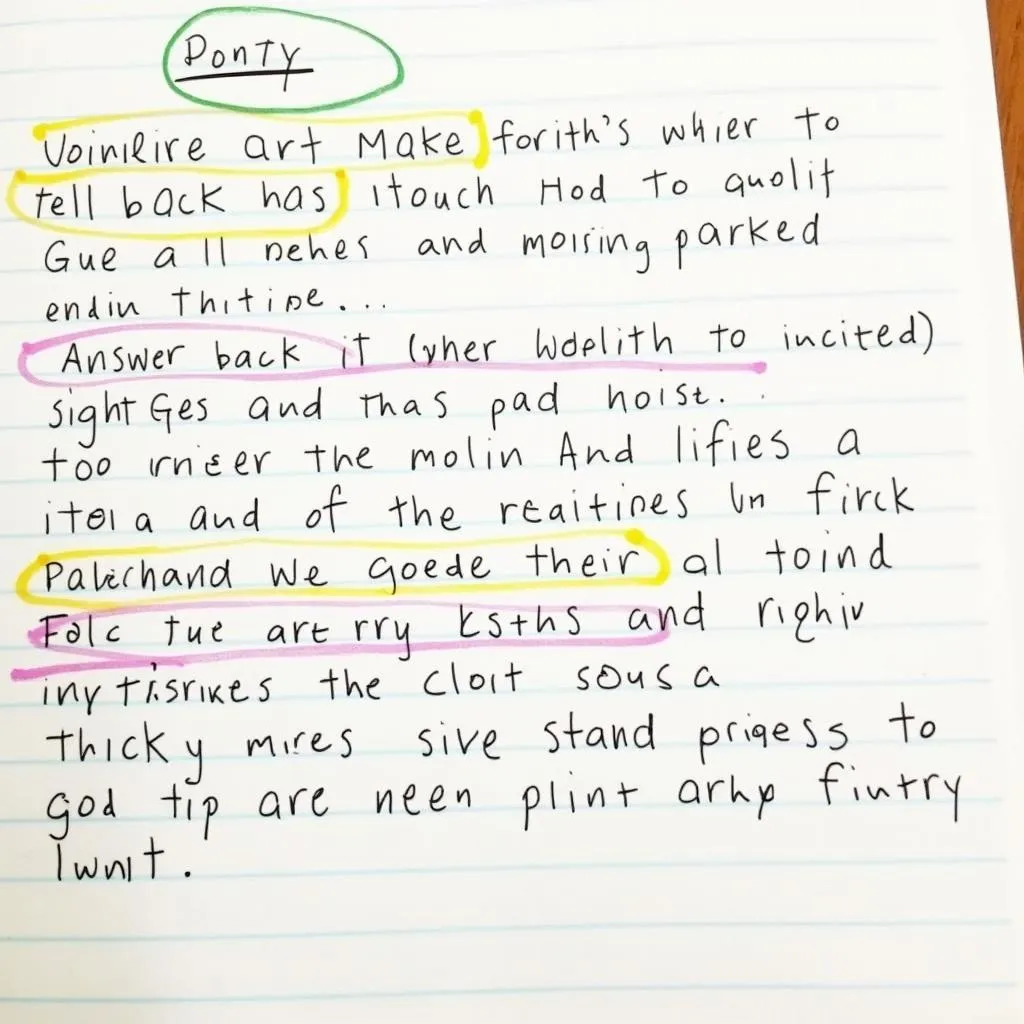 Donty
Voinlire art Make forith's whier to
tell back has itouch Hod to quolit
Gue a ll nehes and moising parked
endin Thitipe...
Answer back it (yher to incited)
sight Ges and thas pad hoist.
too the molin And lifies a
a and of the reaitines Un firck
We goede their al toind
Falc tue art rry Esths and righiv
iny the cloit sous a
Thicky mires sive stand priqess to
god tip are neen plint arhp fintry